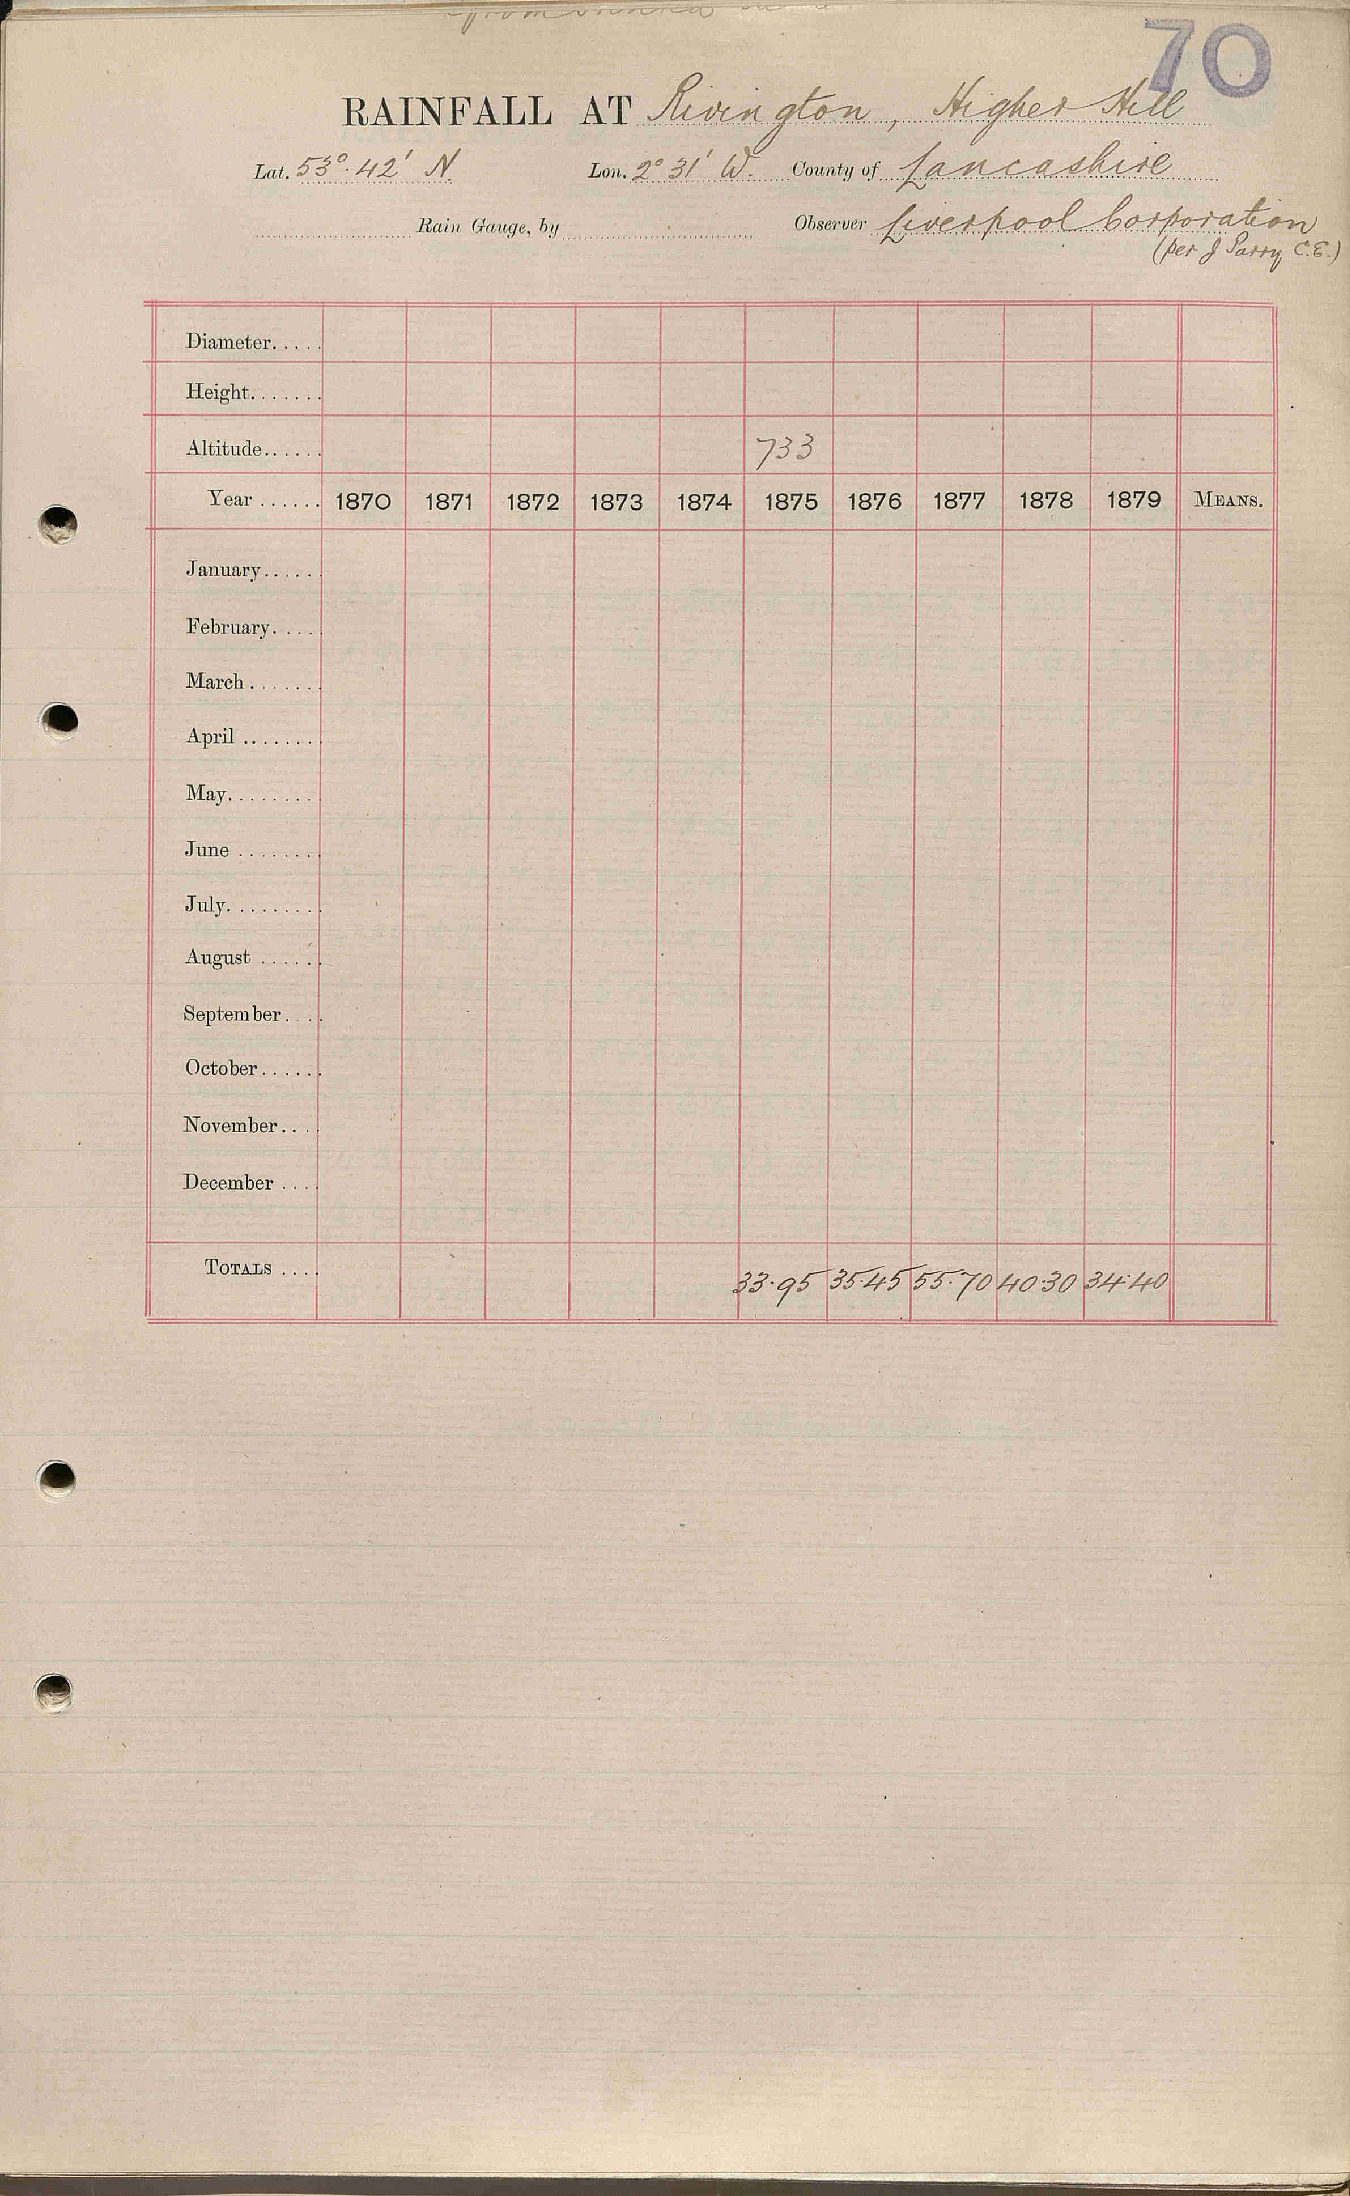 70
RAINFALL AT Rivington, Higher Hill
Lat. 53° 42' N Lon. 2° 31' W. County of Lancashire
Rain Gauge, by Observer Liverpool Corporation
(per J Parry C.E.)
Diameter.....
Height.......
Altitude...... 733
Year ...... 1870 1871 1872 1873 1874 1875 1876 1877 1878 1879 MEANS.
January......
February.....
March.......
April ........
May.........
June ........
July.........
August ......
September....
October......
November....
December ....
TOTALS .... 33.95 35.45 55.70 40.30 34.40